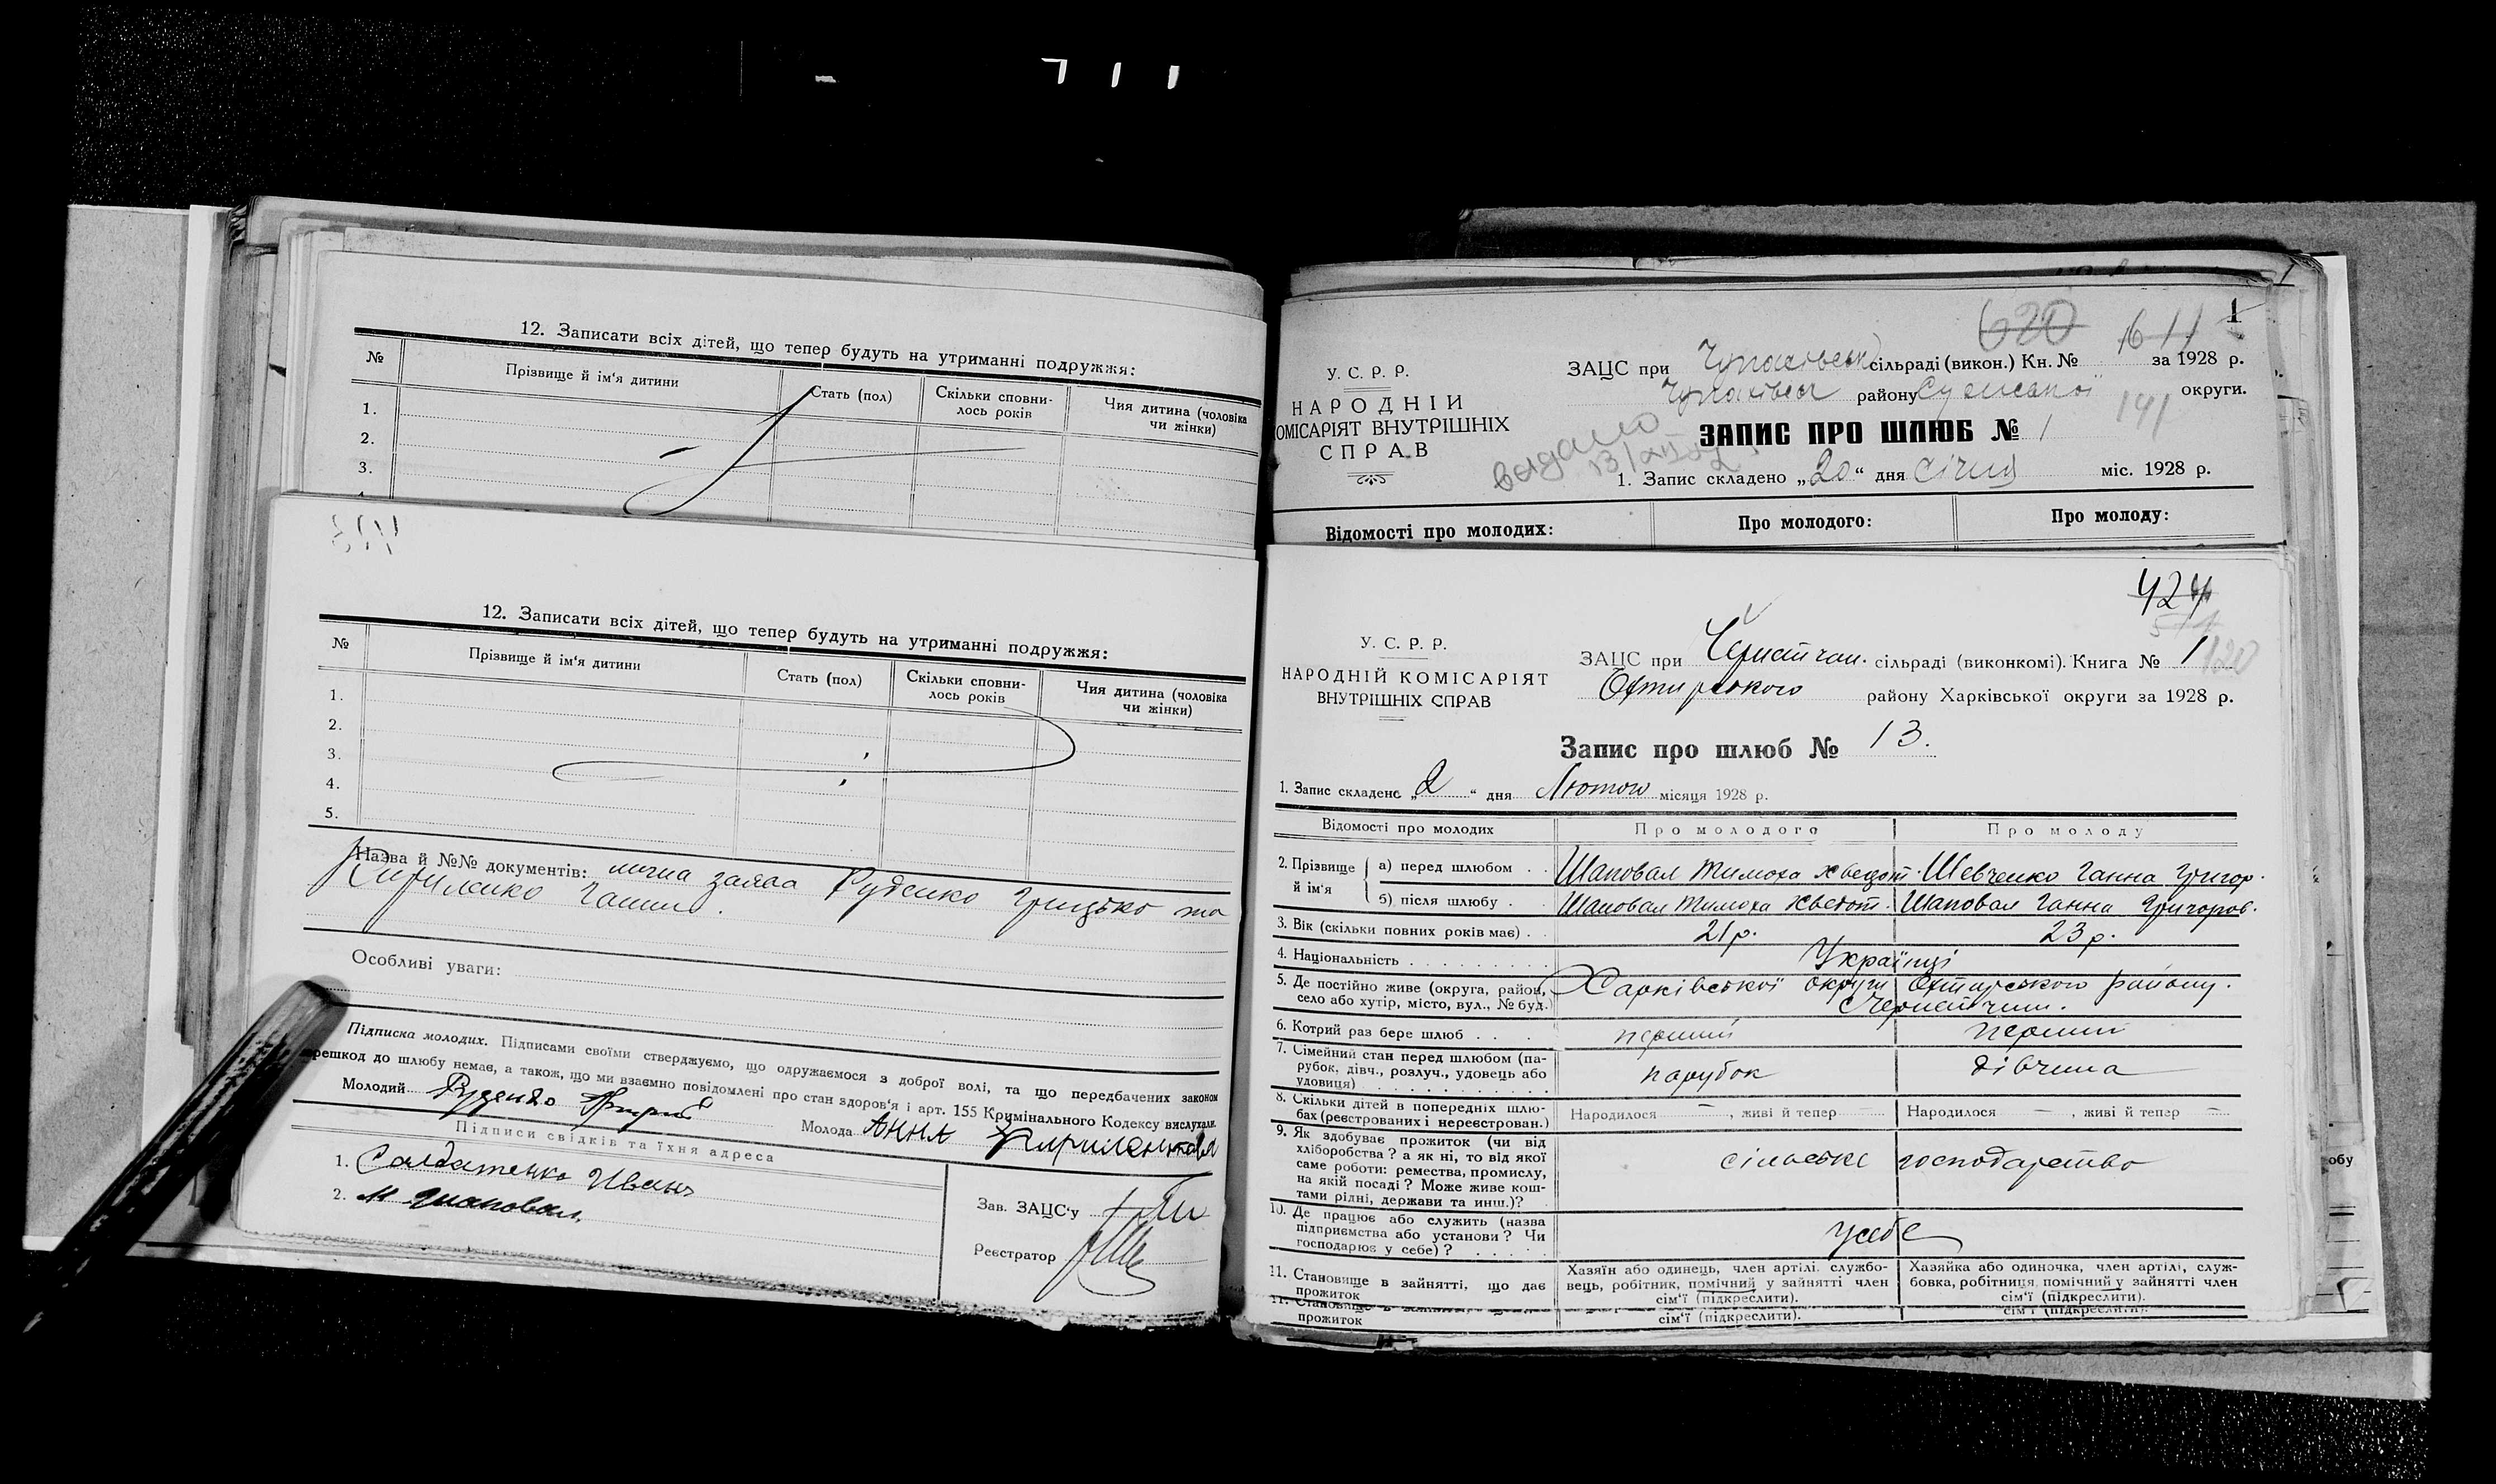 12. Записати всіх дітей, що тепер будуть на утриманні подружжя:
№ Прізвище й ім'я дитини Стать (пол) Скільки сповнилось років Чия дитина (чоловіка чи жінки)
1.
2.
3.
12. Записати всіх дітей, що тепер будуть на утриманні подружжя:
№ Прізвище й ім'я дитини Стать (пол) Скільки сповнилось років Чия дитина (чоловіка чи жінки)
1.
2.
3.
4.
5.
Назва й №№ документів: лична заява Руденко Грицько та
Кириленко Ганни.
Особливі уваги:
Підписка молодих. Підписами своїми стверджуємо, що одружаємося з доброї волі, та що передбачених законом
перешкод до шлюбу немає, а також, що ми взаємно повідомлені про стан здоров'я і арт. 155 Кримінального Кодексу вислухали.
Молодий Руденко Молода Анна
Підписи свідків та їхня адреса
1. Солдатенко Иванъ
2. М Шаповал
Зав. ЗАЦС'у
Реєстратор
1
620
У. С. Р. Р.
НАРОДНІЙ
КОМІСАРІЯТ ВНУТРІШНІХ
СПРАВ
ЗАЦС при Чупахівськ сільраді (викон.) Кн. № за 1928 р.
Чупахівськ району Сумської округи.
141
видано
ЗАПИС ПРО ШЛЮБ № 1
1. Запис складено „20“ дня Січня міс. 1928 р.
Відомості про молодих: Про молодого: Про молоду:
424
У. С. Р. Р.
НАРОДНІЙ КОМІСАРІЯТ
ВНУТРІШНІХ СПРАВ
ЗАЦС при сільраді (виконкомі). Книга № 1
Охтирського району Харківської округи за 1928 р.
Запис про шлюб № 13.
1. Запис складено „2“ дня Лютого місяця 1928 р.
Відомості про молодих Про молодого Про молоду
2. Прізвище й ім'я
а) перед шлюбом Шаповал Тимоха Хведот. Шевченко Ганна Григор.
б) після шлюбу Шаповал Тимоха Хведот. Шаповал Ганна Григоров.
3. Вік (скільки повних років має) 21 р. 23 р.
4. Національність Українці
5. Де постійно живе (округа, район, Харківської округи Охтирського району.
село або хутір, місто, вул., № буд.)
6. Котрий раз бере шлюб перший перший
7. Сімейний стан перед шлюбом (парубок, дівч., розлуч., удовець або удовиця) парубок дівчина
8. Скільки дітей в попередніх шлюбах (реєстрованих і нереєстрован.) Народилося — , живі й тепер — Народилося — , живі й тепер —
9. Як здобуває прожиток (чи від
хліборобства? а як ні, то від якої
саме роботи: ремества, промислу, сільське господарство
на якій посаді? Може живе коштами рідні, держави та инш.)?
10. Де працює або служить (назва
підприємства або установи? Чи у себе
господарює у себе)?
11. Становище в зайнятті, що дає прожиток
Хазяїн або одинець, член артілі, службовець, робітник, помічний у зайнятті член сім'ї (підкреслити).
Хазяйка або одиночка, член артілі, службовка, робітниця, помічний у зайнятті член сім'ї (підкреслити).
11. Становище
прожиток
сім'ї (підкреслити).
сім'ї (підкреслити).
обу